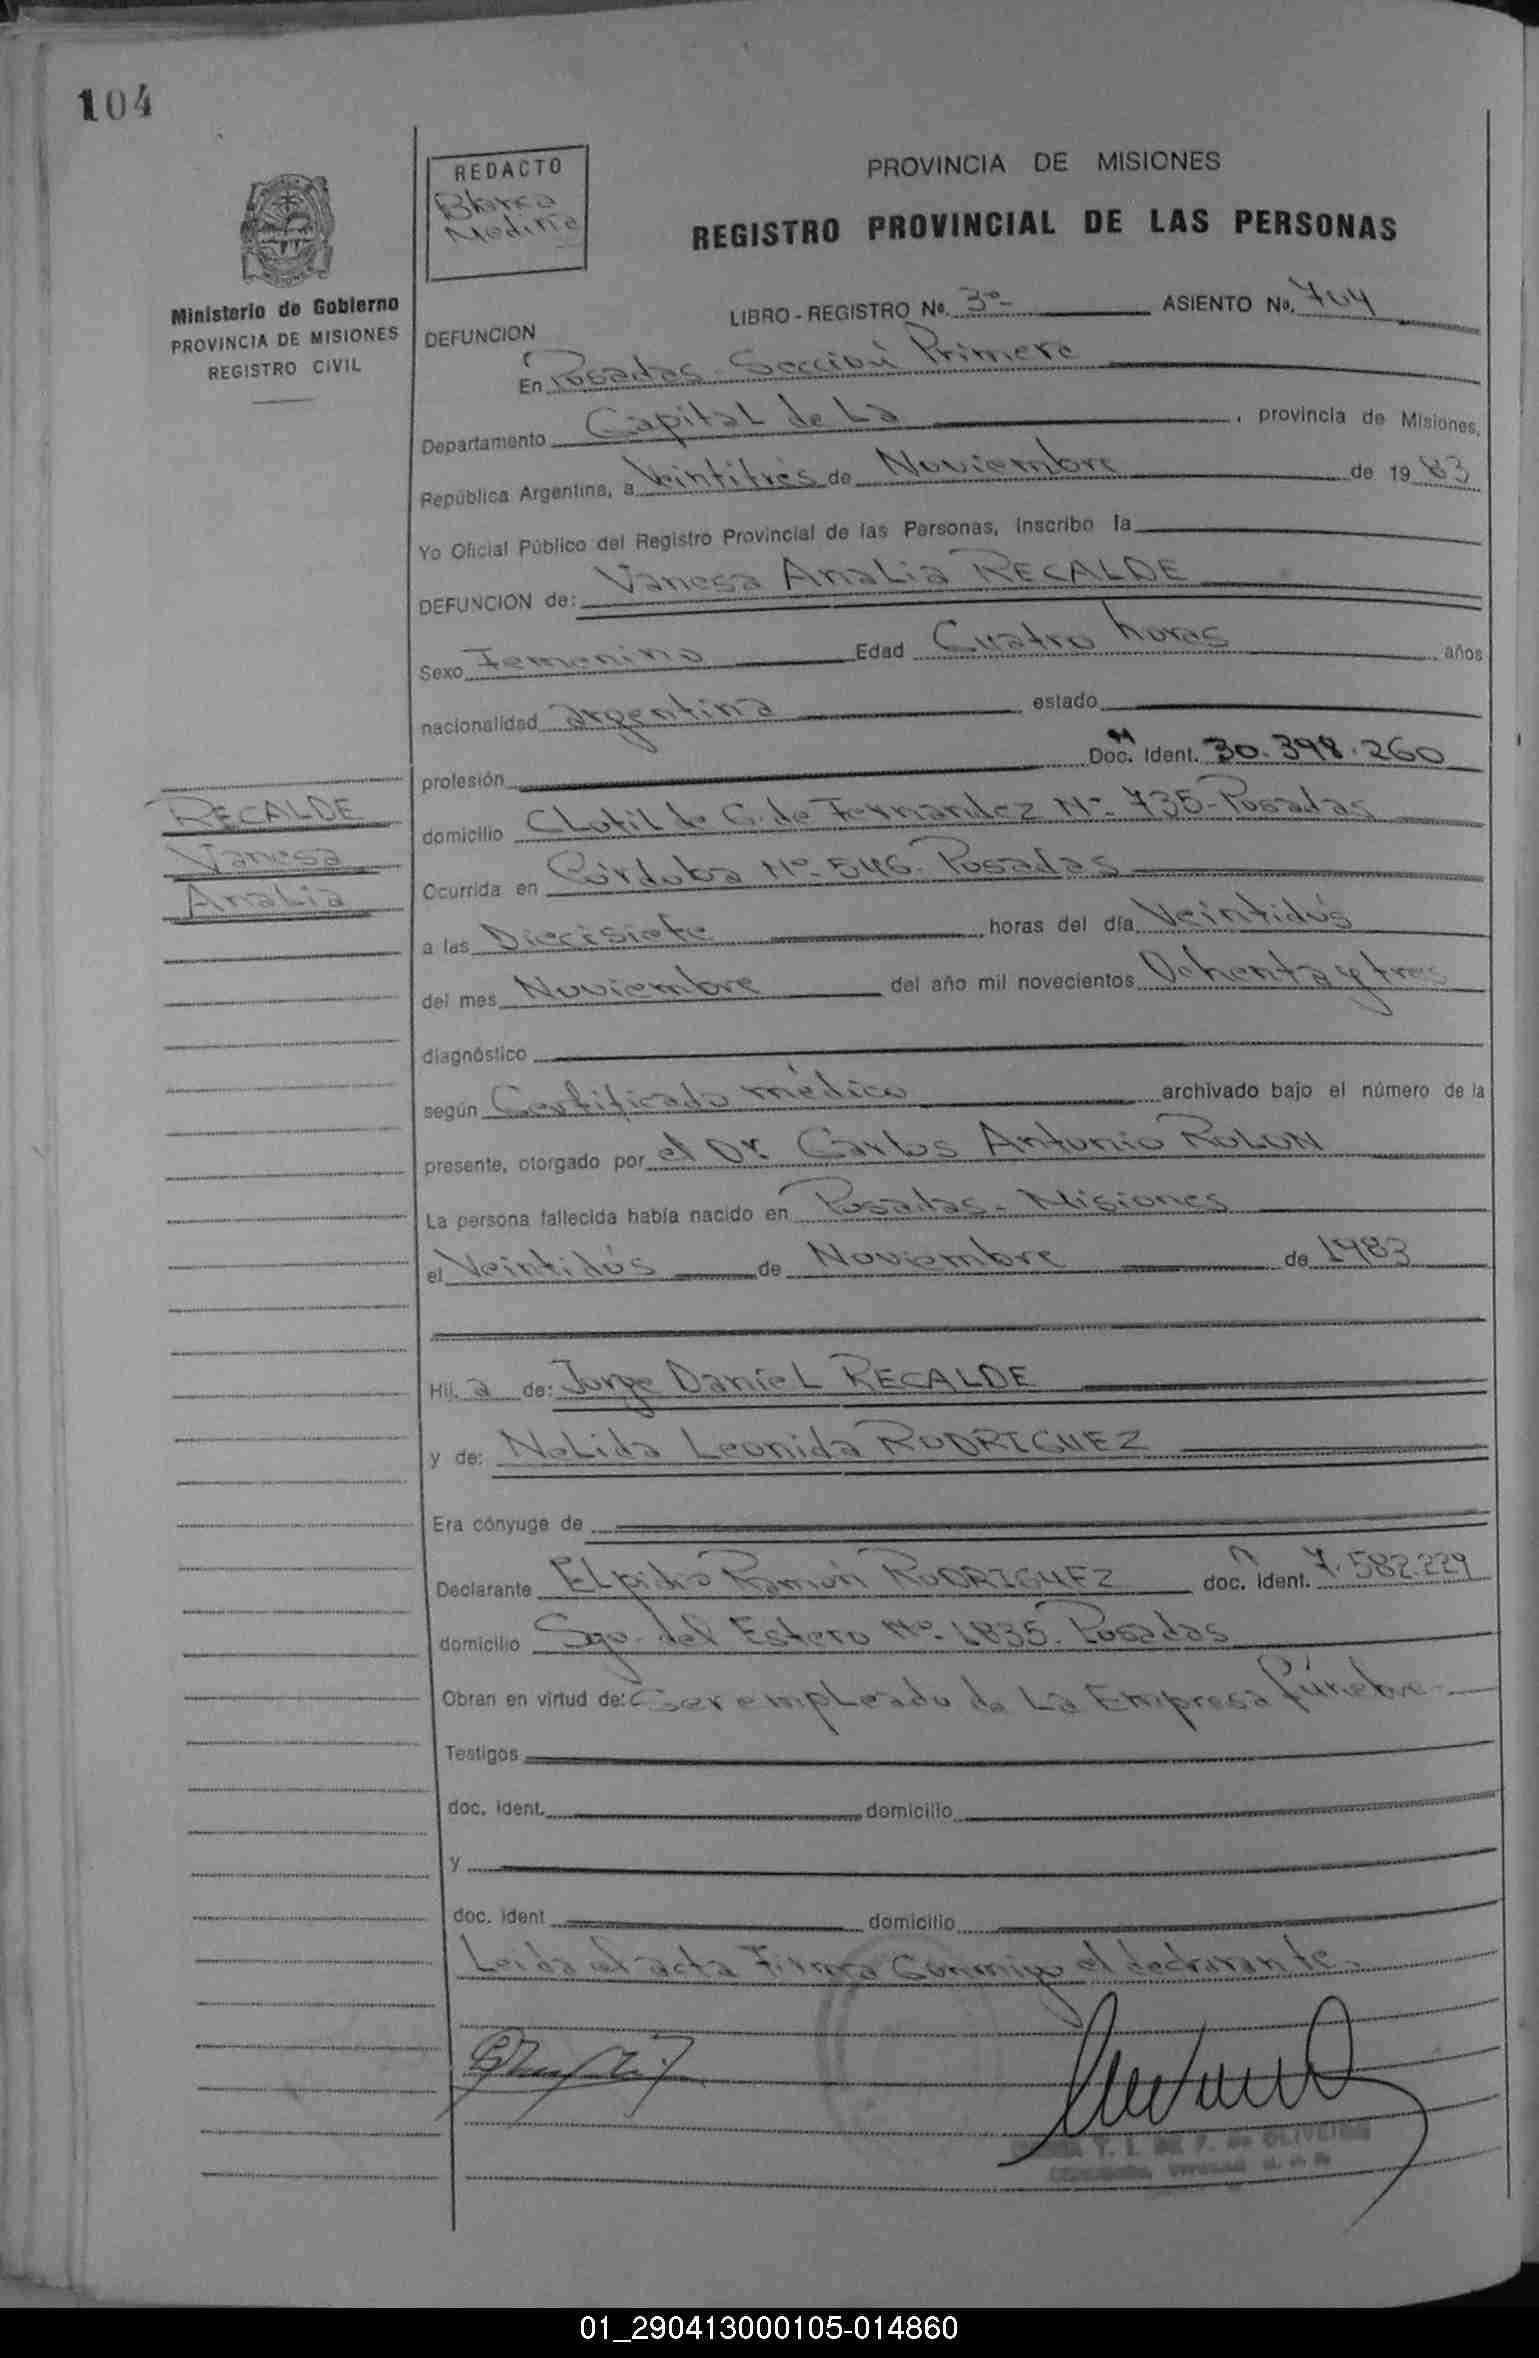 104
REDACTO
Blanca
Medina
PROVINCIA DE MISIONES
REGISTRO PROVINCIAL DE LAS PERSONAS
Ministerio de Gobierno
PROVINCIA DE MISIONES
REGISTRO CIVIL
LIBRO - REGISTRO No. 3º- ASIENTO No. 704
DEFUNCION
En Posadas - Sección Primera
Departamento Capital de La , provincia de Misiones,
República Argentina, a Veintitrés de Noviembre de 19 83
Yo Oficial Público del Registro Provincial de las Personas, inscribo la
DEFUNCION de: Vanesa Analia RECALDE
Sexo Femenino Edad Cuatro horas años
nacionalidad argentina estado
profesión Doc. Ident. 30.398.260
RECALDE
Vanesa
Analia
domicilio Clotilde G. de Fernandez Nº- 735 - Posadas
Ocurrida en Córdoba Nº- 546. Posadas
a las Diecisiete horas del día Veintidós
del mes Noviembre del año mil novecientos Ochenta y tres
diagnóstico
según Certificado médico archivado bajo el número de la
presente, otorgado por el Dr. Carlos Antonio ROLON
La persona fallecida había nacido en Posadas - Misiones
el Veintidós de Noviembre de 1983
Hij. a de: Jorge Daniel RECALDE
y de: Nelida Leonida RODRIGUEZ
Era cónyuge de
Declarante Elpidio Ramón RODRIGUEZ doc. ident. 7.582.229
domicilio Sgo. del Estero Nº- 1835. Posadas
Obran en virtud de: Ser empleado de La Empresa fúnebre -
Testigos
doc. ident. domicilio
y
doc. ident domicilio
Leida el acta Firma Conmigo el declarante.
DE OLIVEIRA
01_290413000105-014860